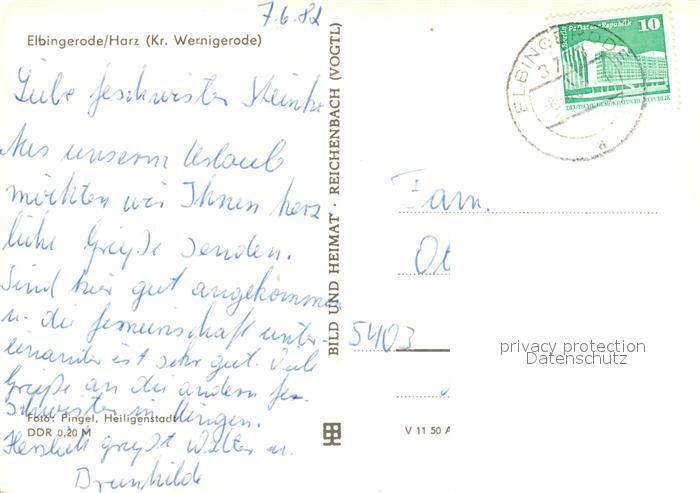 7.6.82
Elbingerode/Harz (Kr. Wernigerode)
Liebe Geschwister Steinke
Aus unserm Urlaub
möchten wir Ihnen herz
liche Grüße senden.
Sind hier gut angekommen
u. die Gemeinschaft unter-
einander ist sehr gut. Viele
Grüße an die andern Ge-
schwister in
Herzlich grüßt Walter u.
Brunhilde
Foto: Pingel, Heiligenstadt
DDR 0,20 M
BILD UND HEIMAT · REICHENBACH (VOGTL)
V 11 50 A
Berlin Palast der Republik 10
DEUTSCHE DEMOKRATISCHE REPUBLIK
ELBINGERODE
Fam.
Ot
5403
privacy protection
Datenschutz